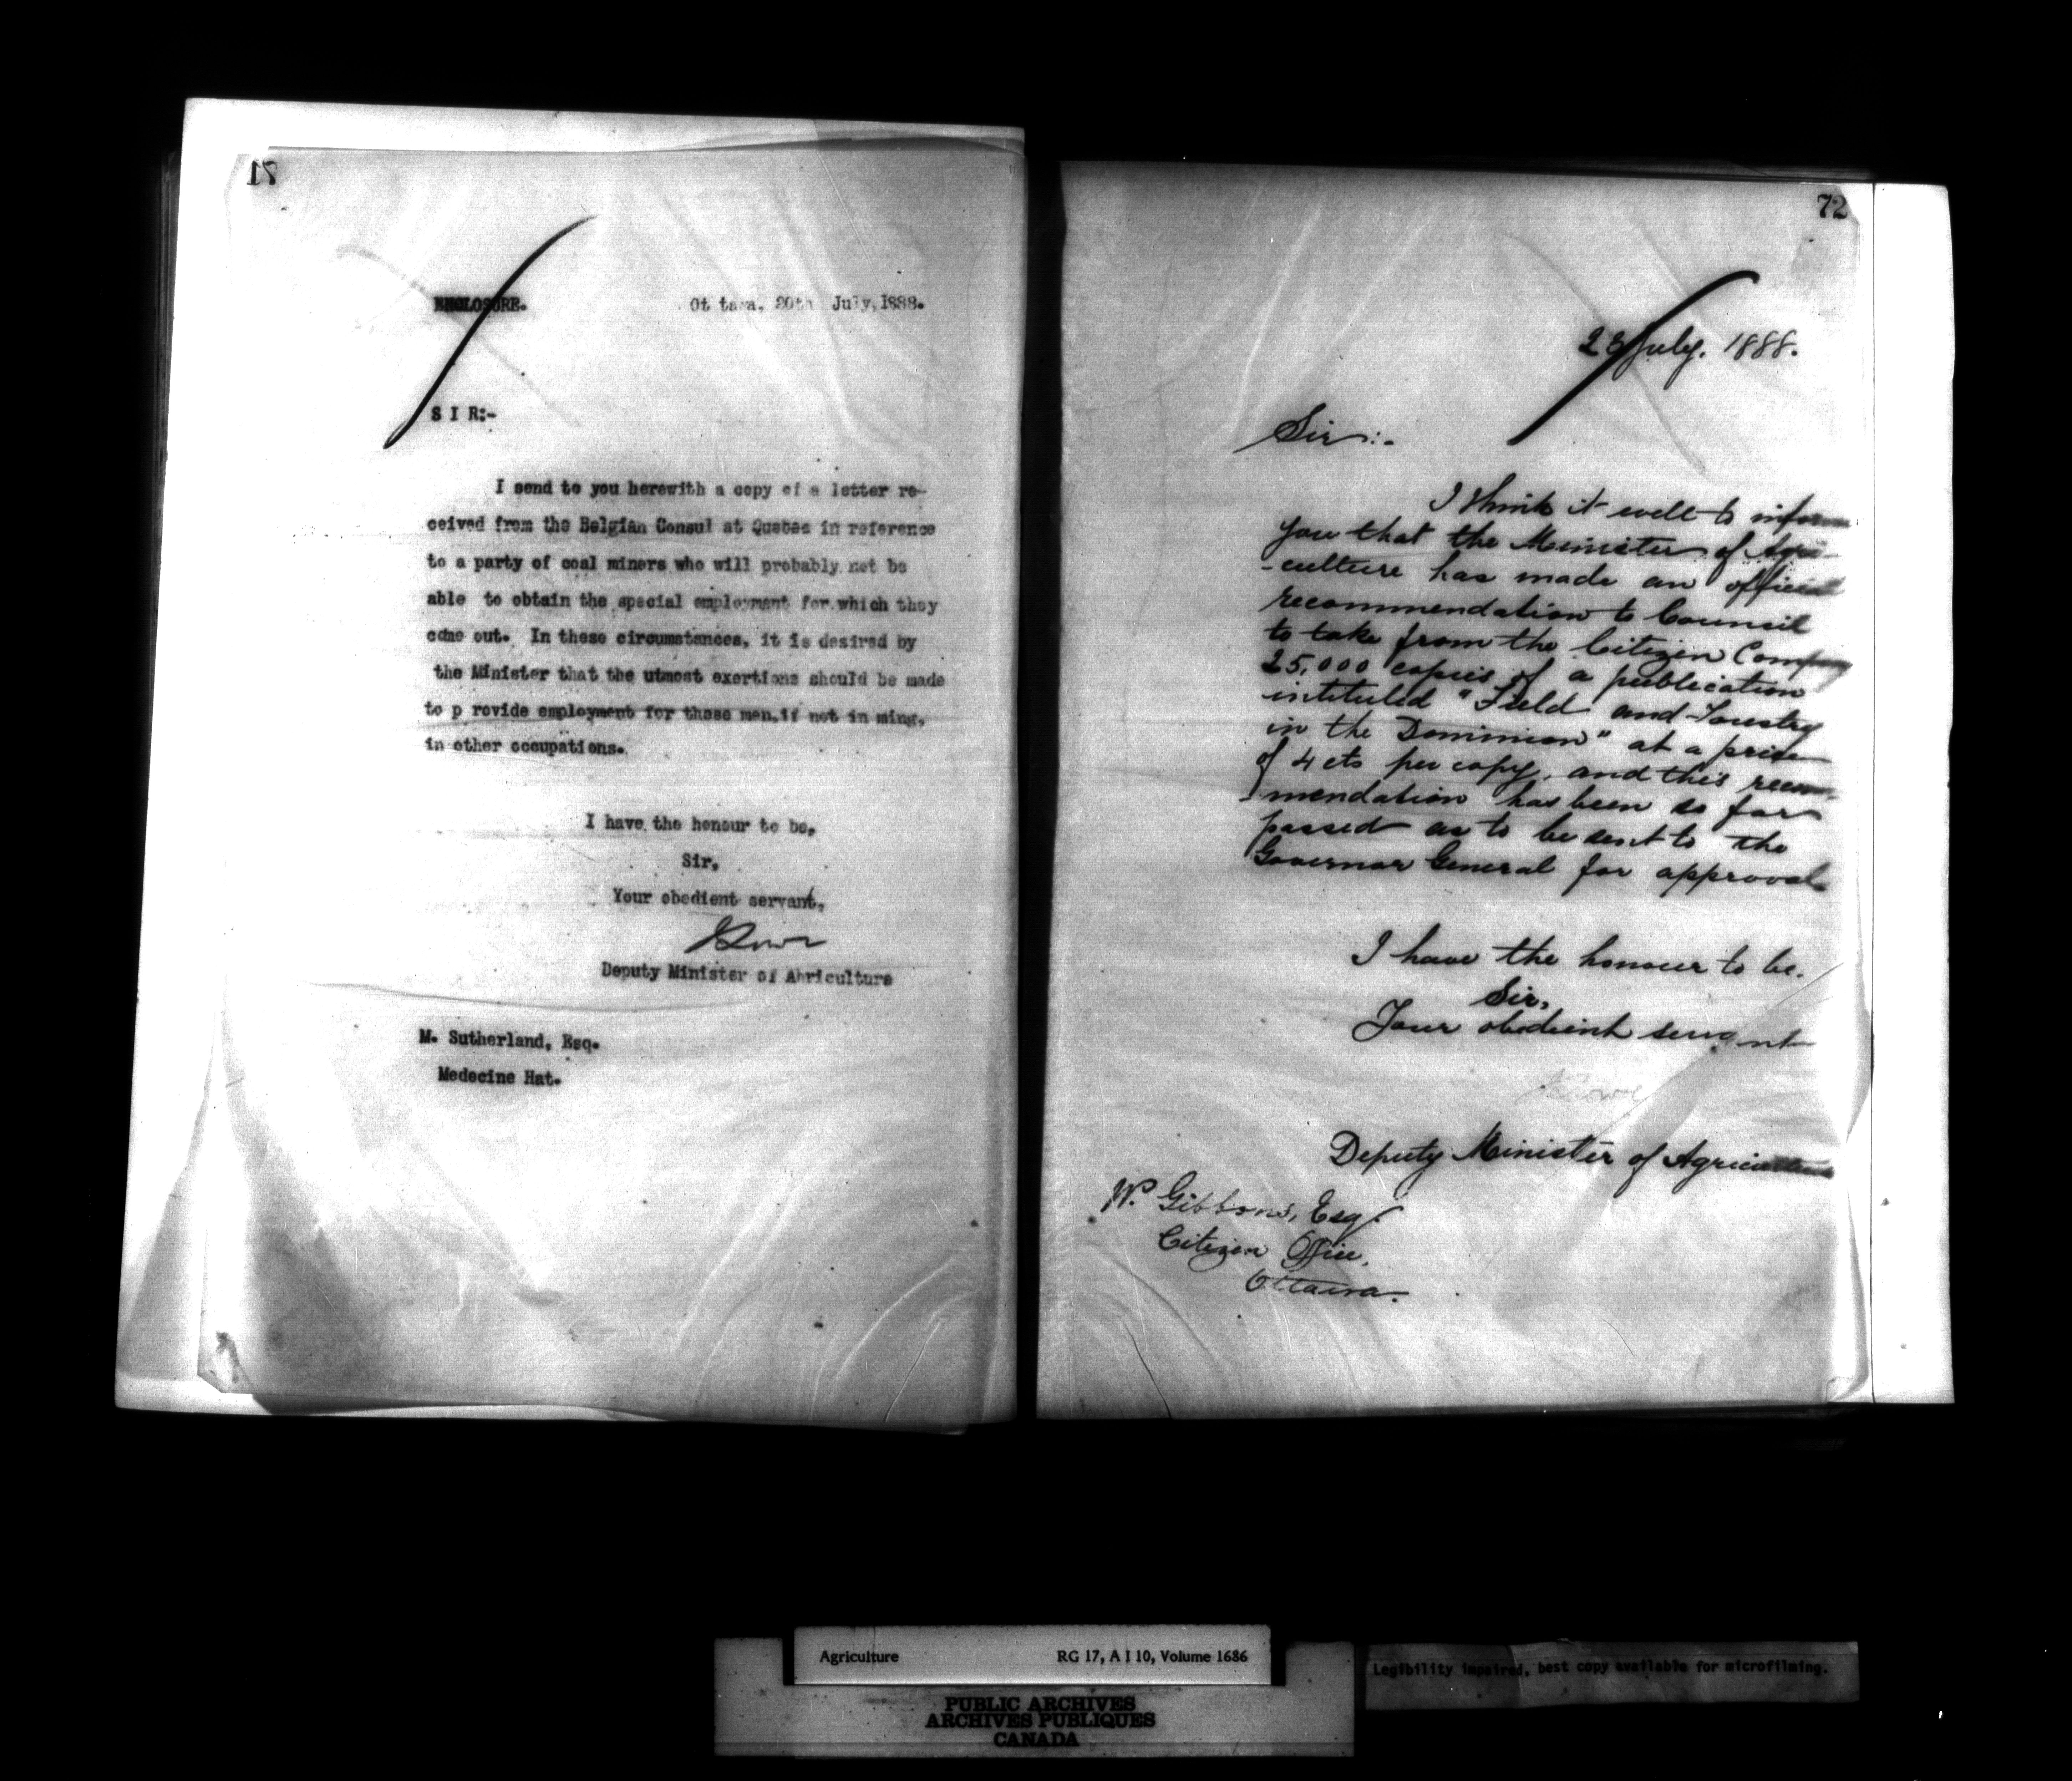 71
ENCLOSURE.
Ot tawa, 20th July, 1888.
S I R:-
I send to you herewith a copy of a letter re-
ceived from the Belgian Consul at Quebec in reference
to a party of coal miners who will probably not be
able to obtain the special employment for which they
come out. In these circumstances, it is desired by
the Minister that the utmost exertions should be made
to p rovide employment for these men, if not in ming,
in other occupations.
I have the honour to be,
Sir,
Your obedient servant,
JLowe
Deputy Minister of Ahriculture
M. Sutherland, Esq.
Medecine Hat.
72
23 July. 1888.
Sir:-
I think it well to inform
you that the Minister of Agri-
-culture has made an official
recommendation to Council
to take from the Citizen Company
25,000 copies of a publication
intituled "Field and Forestry
in the Dominion" at a price
of 4 cts per copy, and this recom-
-mendation has been so far
passed as to be sent to the
Governor General for approval.
I have the honour to be.
Sir,
Your obedient servant
JLowe
Deputy Minister of Agriculture
W. Gibbons, Esq.
Citizen Office,
Ottawa.
Agriculture RG 17, A I 10, Volume 1686
Legibility impaired, best copy available for microfilming.
PUBLIC ARCHIVES
ARCHIVES PUBLIQUES
CANADA